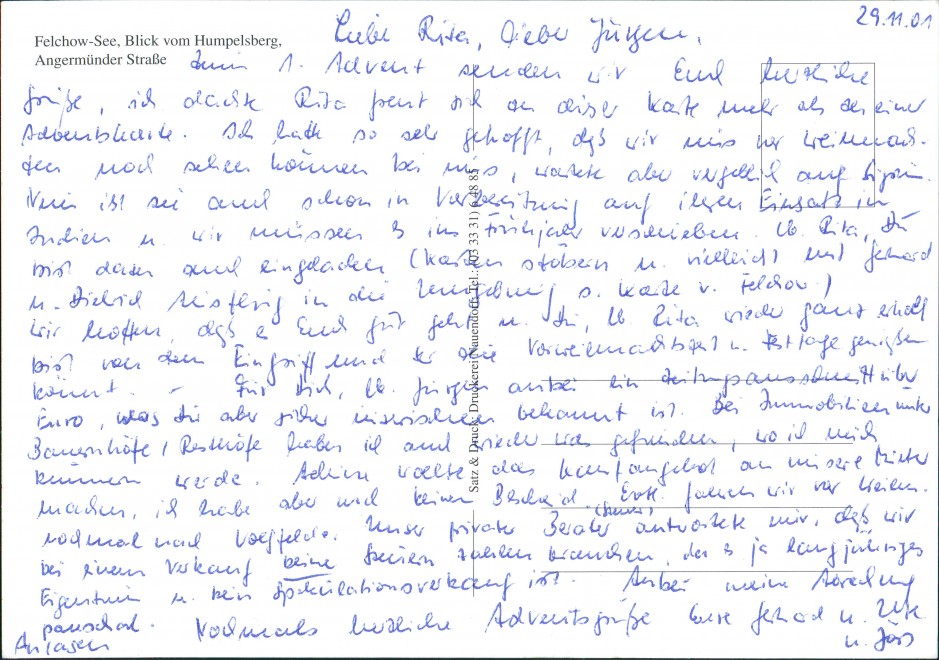 29.11.01
Felchow-See, Blick vom Humpelsberg,
Angermünder Straße
Liebe Rita, lieber Jürgen,
zum 1. Advent senden wir Euch herzliche
Grüße, ich dachte Rita freut sich an dieser Karte mehr als an einer
Adventskarte. Ich hatte so sehr gehofft, daß wir uns vor Weihnach-
ten noch sehen können bei uns, wartete aber vergeblich auf
Nun ist sie auch schon in Vorbereitung auf ihren Einsatz in
Indien u. wir müssen es ins Frühjahr verschieben. Lb. Rita, Du
bist dazu auch eingeladen (Karten stöbern u. vielleicht mit Gerhard
u. in die Umgebung s. Karte v. Felchow)
Wir hoffen, daß es Euch gut geht u. Du, lb Rita wieder ganz erholt
bist von dem Eingriff und Ihr die Vorweihnachtszeit u. Festtage genießen
könnt. - Für Dich, lb. Jürgen anbei ein Zeitungsausschnitt über
Euro, was Dir aber sicher inzwischen bekannt ist. Bei Immobilien unter
Bauernhöfe / Resthöfe habe ich auch wieder was gefunden, wo ich mich
kümmern werde. wollte das Kaufangebot an unsere Mieter
machen, ich habe aber noch keinen Bescheid. Evtl. fahren wir vor Weihn.
nochmal nach Unser privater (Steuer) Berater antwortete mir, daß wir
bei einem Verkauf keine Steuern zahlen brauchen, da es ja langjähriges
Eigentum u. kein Spekulationsverkauf ist. Anbei meine
pauschal. Nochmals herzliche Adventsgrüße Eure Gerhard u. Ute
u. Jörg
Anlagen
Satz & Druck: Druckerei Nauendorf, Tel.: (03 33 31) 6 48 85